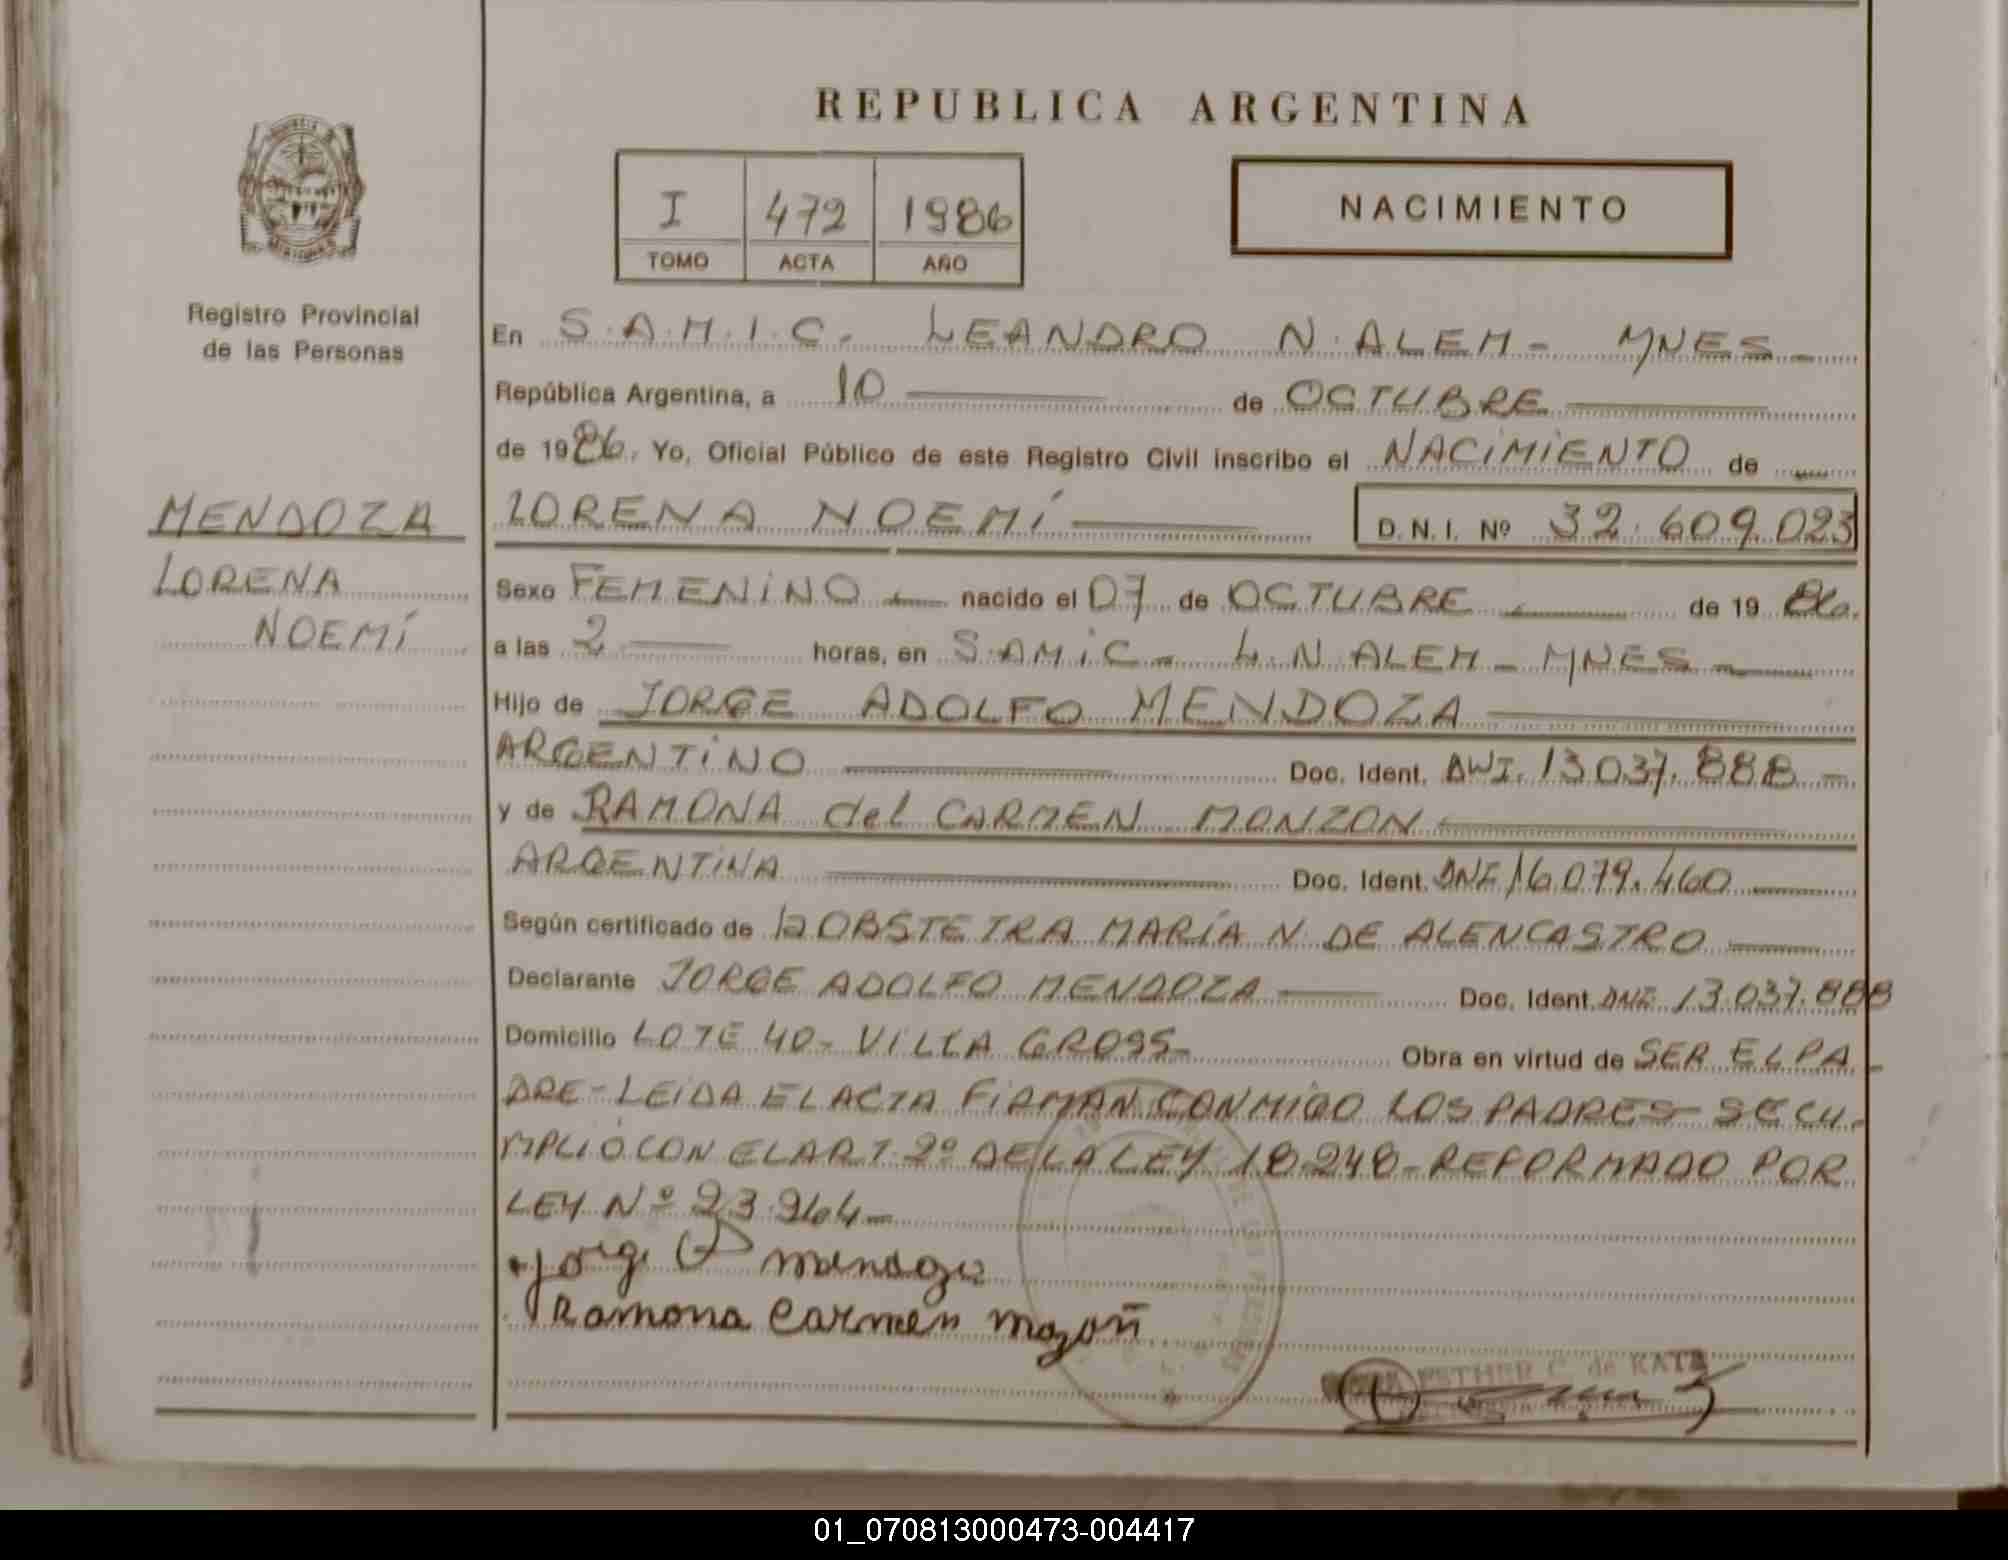 REPUBLICA ARGENTINA
I 472 1986
TOMO ACTA AÑO
NACIMIENTO
Registro Provincial
de las Personas
MENDOZA
LORENA
NOEMÍ
En S.A.M.I.C. LEANDRO N. ALEM - MNES
República Argentina, a 10 de OCTUBRE
de 1986. Yo, Oficial Público de este Registro Civil inscribo el NACIMIENTO de
LORENA NOEMÍ D.N.I. Nº 32.609.023
Sexo FEMENINO nacido el 07 de OCTUBRE de 1986.
a las 2 horas, en S.AMIC - L.N. ALEM - MNES
Hijo de JORGE ADOLFO MENDOZA
ARGENTINO Doc. Ident. DNI. 13.037.888 -
y de RAMONA del CARMEN MONZON
ARGENTINA Doc. Ident. DNI 16.079.460
Según certificado de la OBSTETRA MARÍA N. DE ALENCASTRO
Declarante JORGE ADOLFO MENDOZA Doc. Ident. DNI 13.037.888
Domicilio LOTE 40 - VILLA GROSS - Obra en virtud de SER EL PA-
DRE - LEIDA EL ACTA FIRMAN CONMIGO LOS PADRES - SE CU-
MPLIÓ CON EL ART. 2º DE LA LEY 18.248 - REFORMADO POR
LEY Nº 23.264 -
Jorge A Mendoza
Ramona Carmen Mozoñ
ESTHER C. de KATZ
01_070813000473-004417